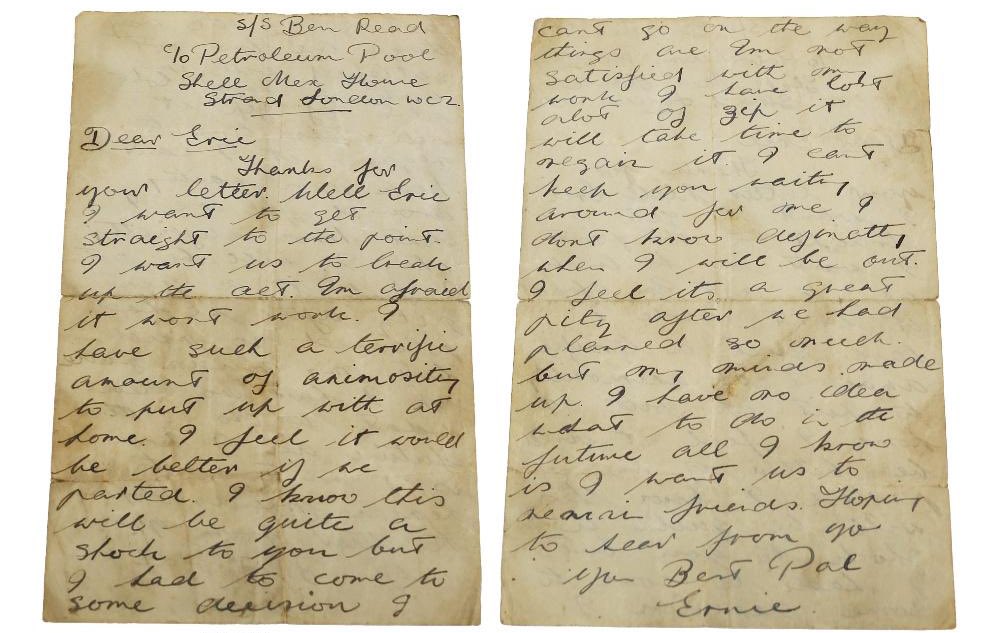 S/S Ben Read
c/o Petroleum Pool
Shell Mex House
Strad London WC2.
Dear Eric
Thanks for
your letter. Well Eric
I want to get
straight to the point.
I want us to break
up the act. Im afraid
it wont work. I
have such a terrific
amount of animosity
to put up with at
home. I feel it would
be better if we
parted. I know this
will be quite a
shock to you but
I had to come to
some decision I
cant go on the way
things are. Im not
satisfied with my
work I have lost
alot of zip it
will take time to
regain it. I cant
keep you waiting
around for me I
dont know definatly
when I will be out.
I feel its a great
pity after we had
planned so much.
but my minds made
up. I have no idea
what to do in the
future all I know
is I want us to
remain friends. Hoping
to hear from yo
Your Best Pal
Ernie.